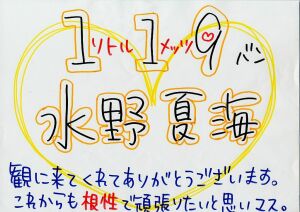 119バン
リトルメッツ
水野夏海
観に来てくれてありがとうございます。
これからも根性で頑張りたいと思いマス。